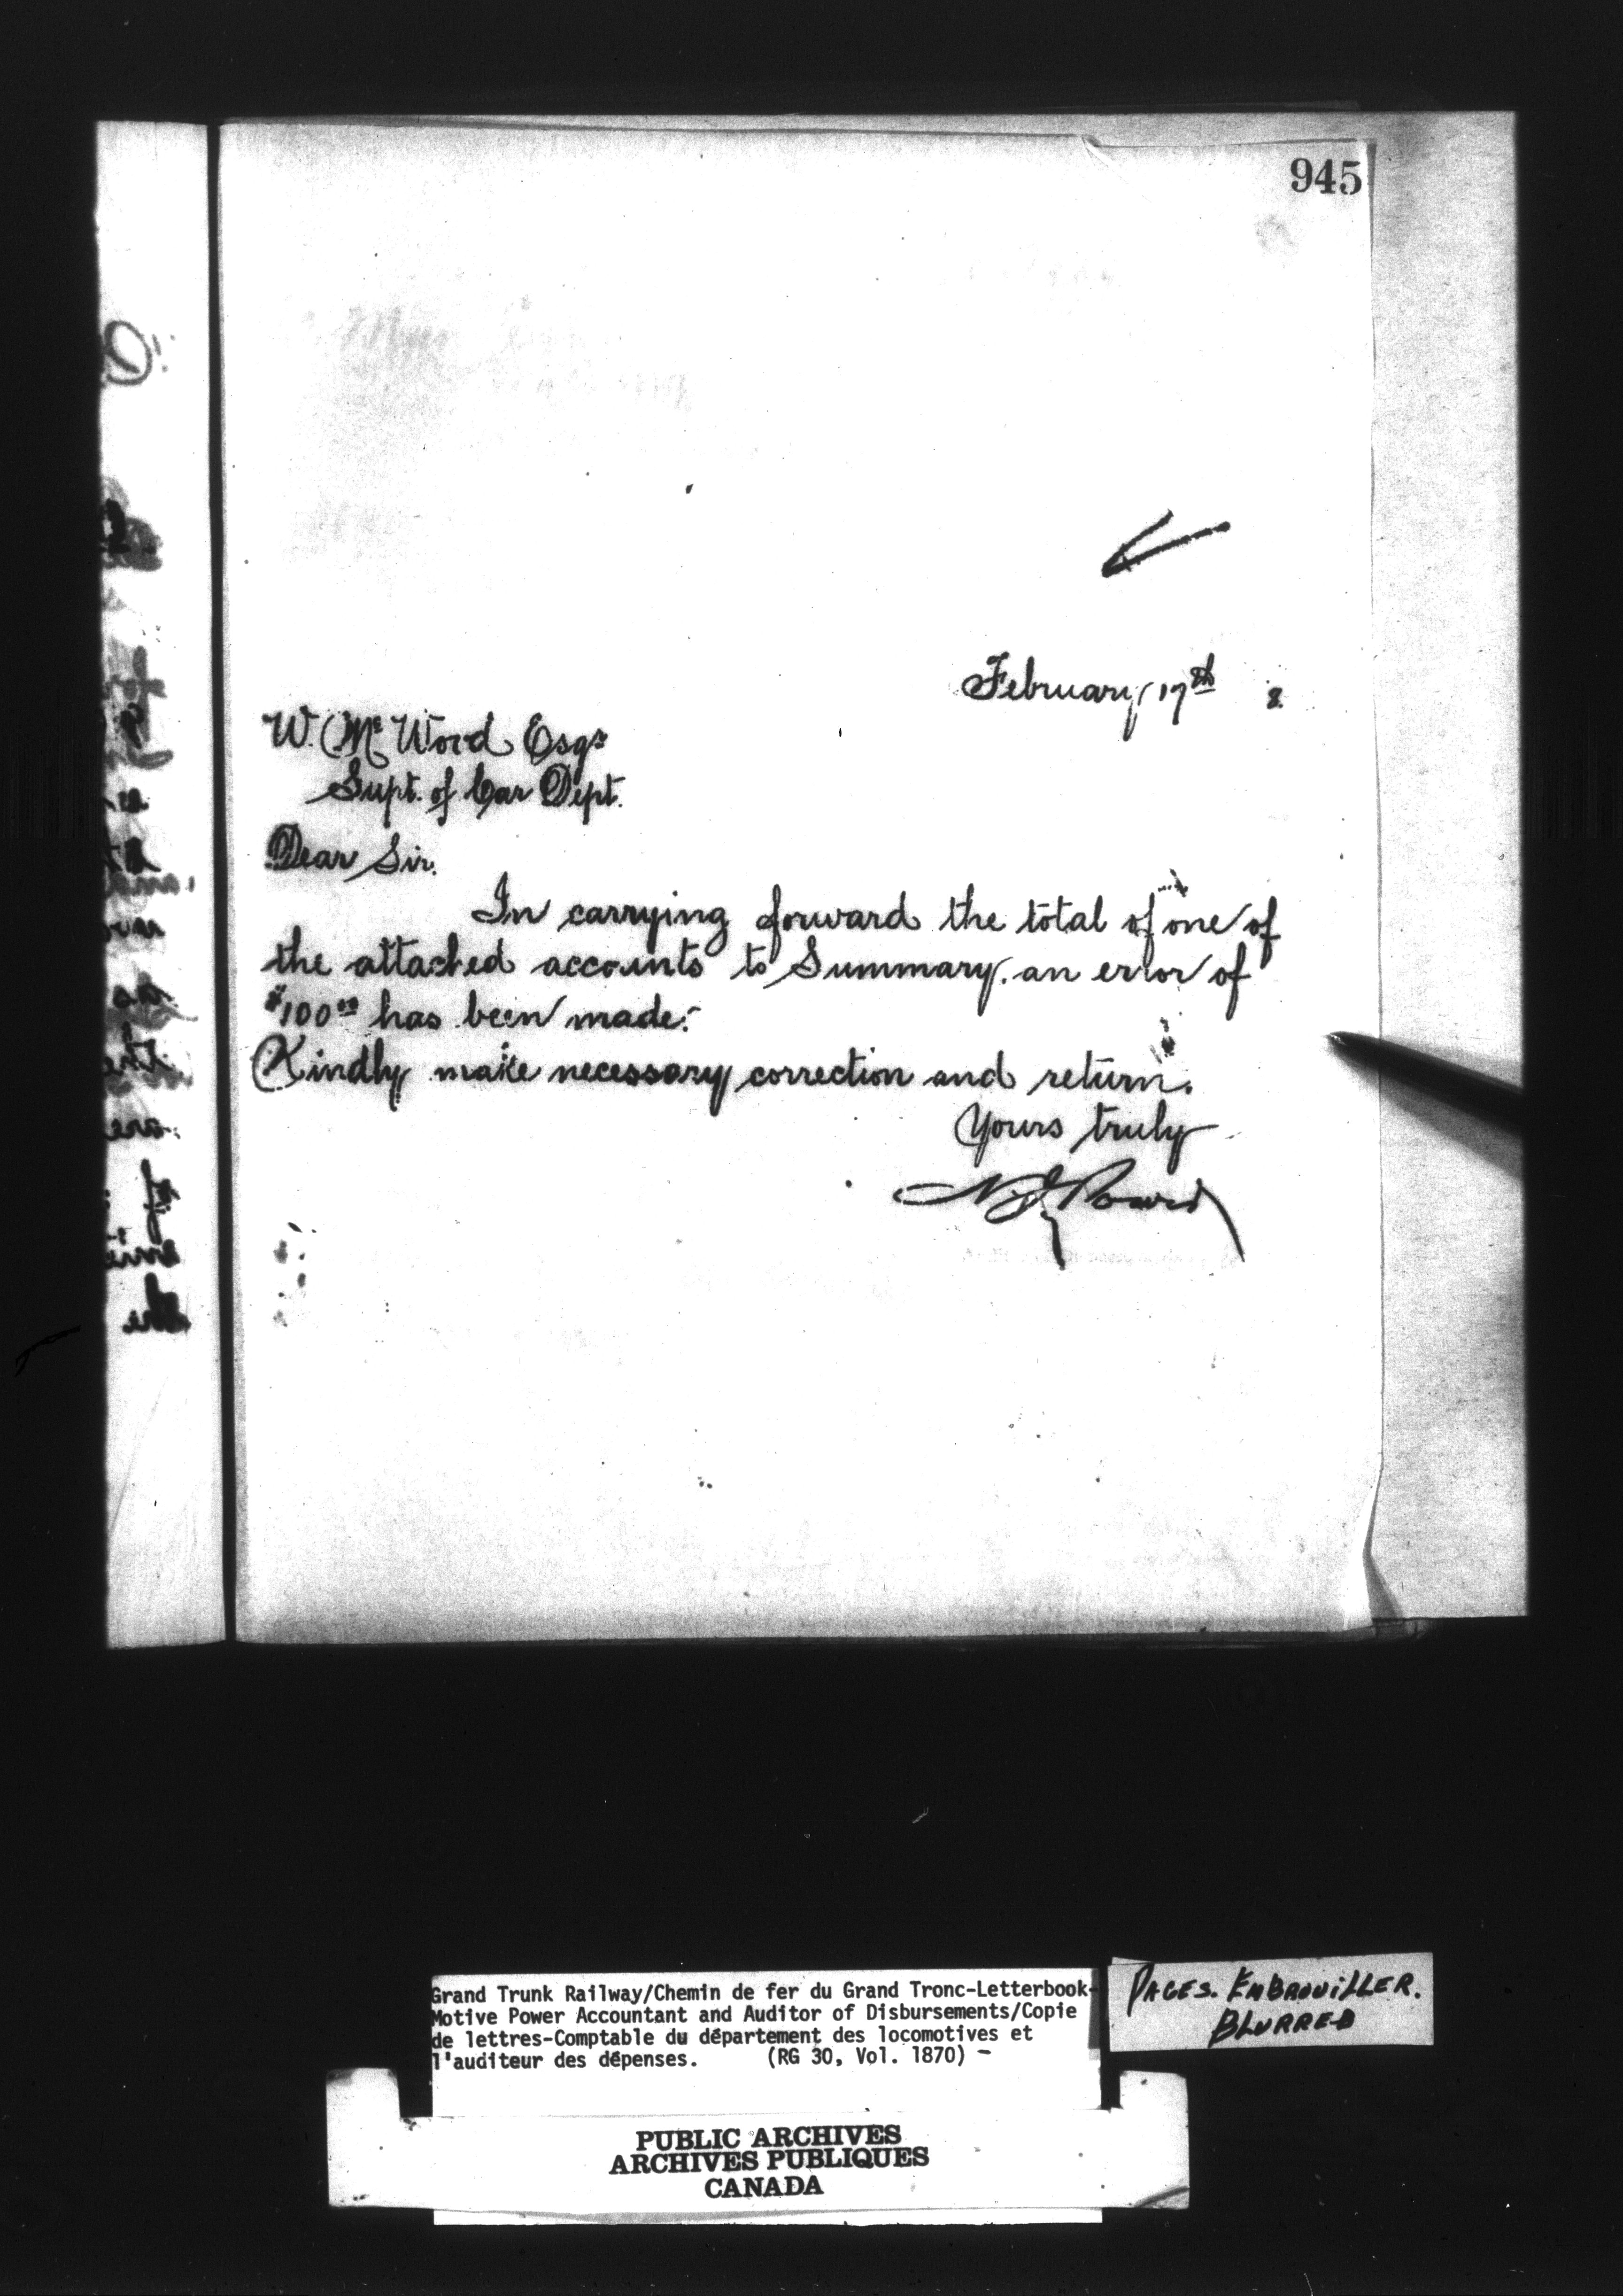 945
February 17th 8.
W. Mc Wood Esqr
Supt. of Car Dept.
Dear Sir.
In carrying forward the total of one of
the attached accounts to Summary. an error of
$100.00 has been made.
Kindly make necessary correction and return.
Yours truly
Grand Trunk Railway/Chemin de fer du Grand Tronc-Letterbook-
Motive Power Accountant and Auditor of Disbursements/Copie
de lettres-Comptable du département des locomotives et
l'auditeur des dépenses. (RG 30, Vol. 1870) -
PAGES. EMBROUILLER.
BLURRED
PUBLIC ARCHIVES
ARCHIVES PUBLIQUES
CANADA